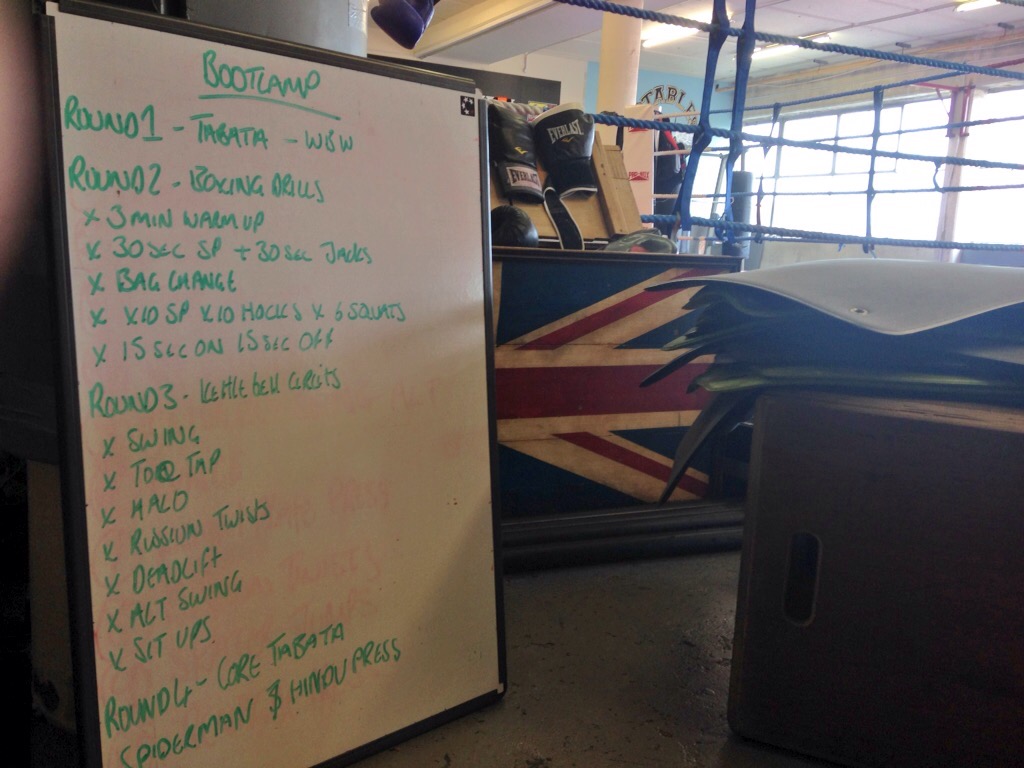 BOOTCAMP
ROUND 1 - TABATA - WBW
ROUND 2 - BOXING DRILLS
x 3 MIN WARM UP
x 30 SEC SP + 30 SEC JACKS
x BAG CHANGE
x x10 SP x10 HOOKS x 6 SQUATS
x 15 SEC ON 15 SEC OFF
ROUND 3 - KETTLEBELL CIRCUITS
x SWING
x TOE TAP
x HALO
x RUSSIAN TWISTS
x DEADLIFT
x ALT SWING
x SIT UPS
ROUND 4 - CORE TABATA
SPIDERMAN & HINDU PRESS
EVERLAST
EVERLAST
TABLE